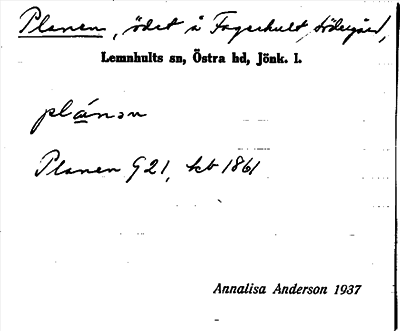 Planen, ödet å Fagerhult, södergård,
Lemnhults sn, Östra hd, Jönk. l.
plánən
Planen G 21, kb 1861
Annalisa Anderson 1937